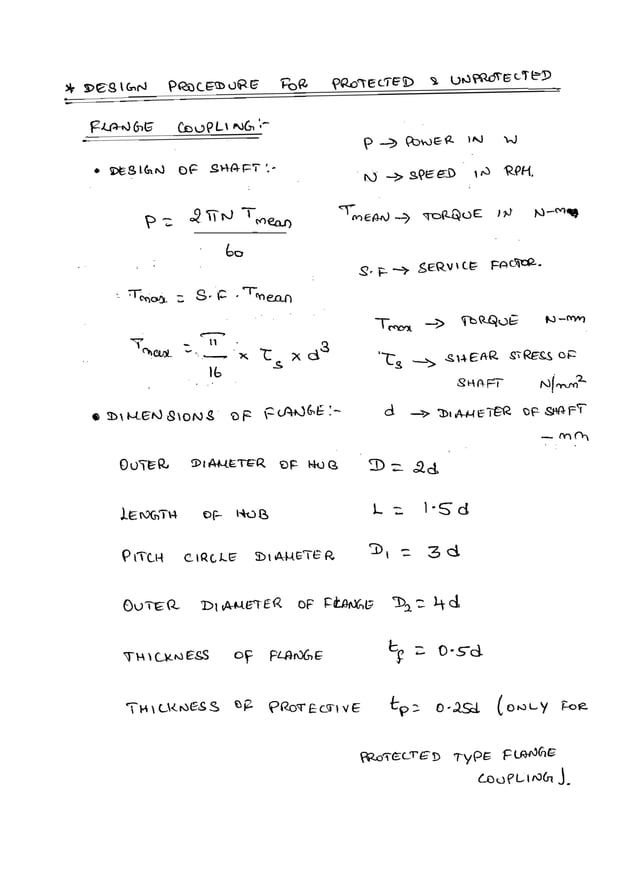 * DESIGN PROCEDURE FOR PROTECTED & UNPROTECTED
FLANGE COUPLING:-
P → POWER IN W
• DESIGN OF SHAFT:-
N → SPEED IN RPM.
P = 2πN Tmean / 60
TMEAN → TORQUE IN N-m
S.F → SERVICE FACTOR.
∴ Tmax = S.F. Tmean
Tmax → TORQUE N-mm
Tmax = π/16 × τs × d³
τs → SHEAR STRESS OF
SHAFT N/mm²
• DIMENSIONS OF FLANGE:-
d → DIAMETER OF SHAFT
– mm
OUTER DIAMETER OF HUB D = 2d
LENGTH OF HUB L = 1.5d
PITCH CIRCLE DIAMETER D₁ = 3d
OUTER DIAMETER OF FLANGE D₂ = 4d
THICKNESS OF FLANGE tf = 0.5d
THICKNESS OF PROTECTIVE tp = 0.25d (ONLY FOR
PROTECTED TYPE FLANGE
COUPLING).